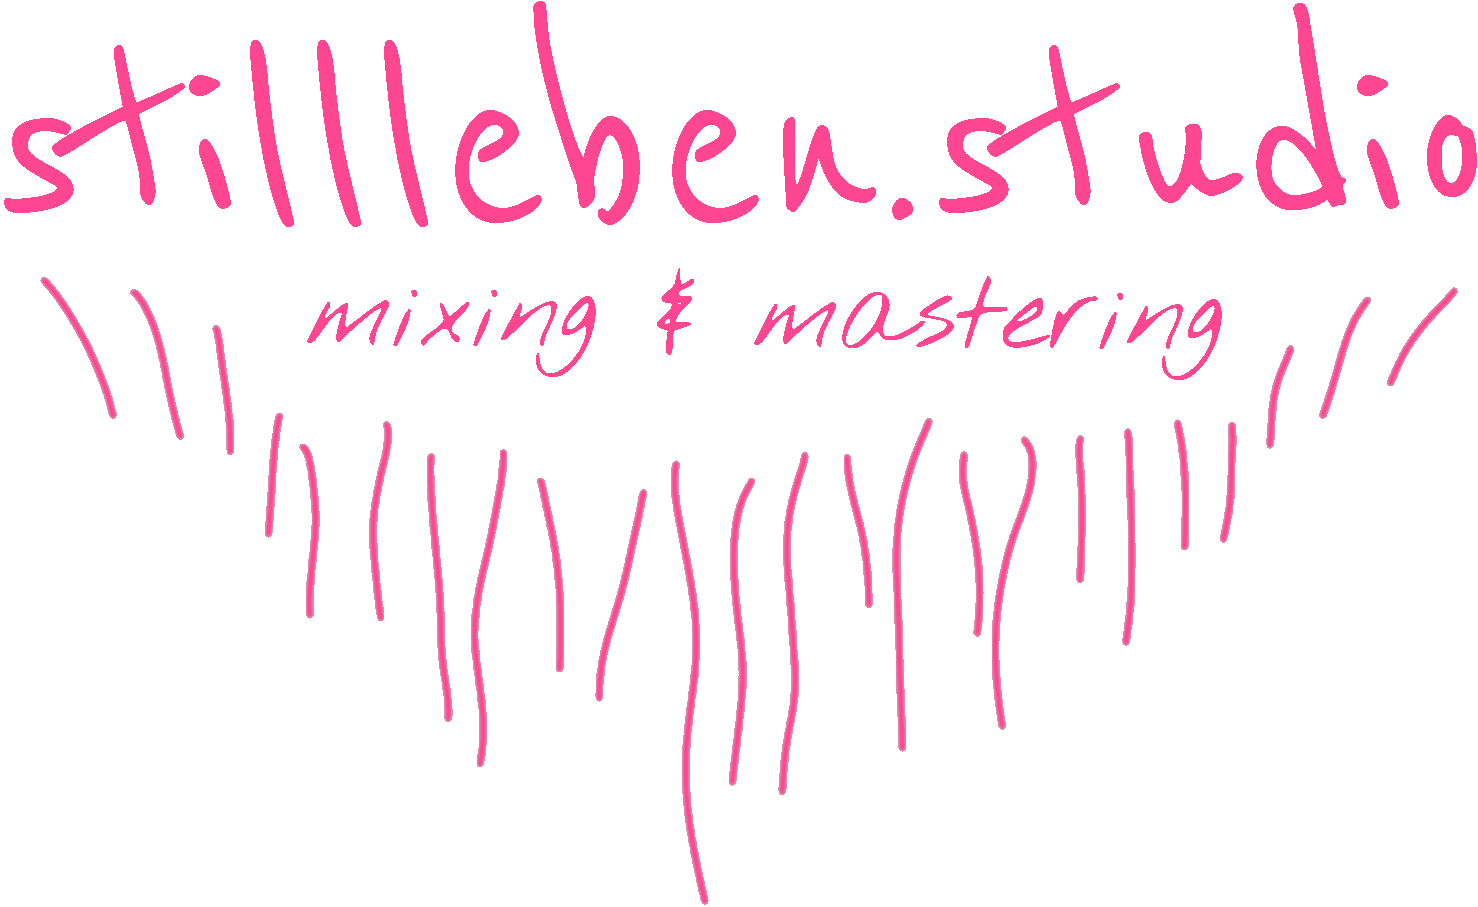 stillleben.studio
mixing & mastering